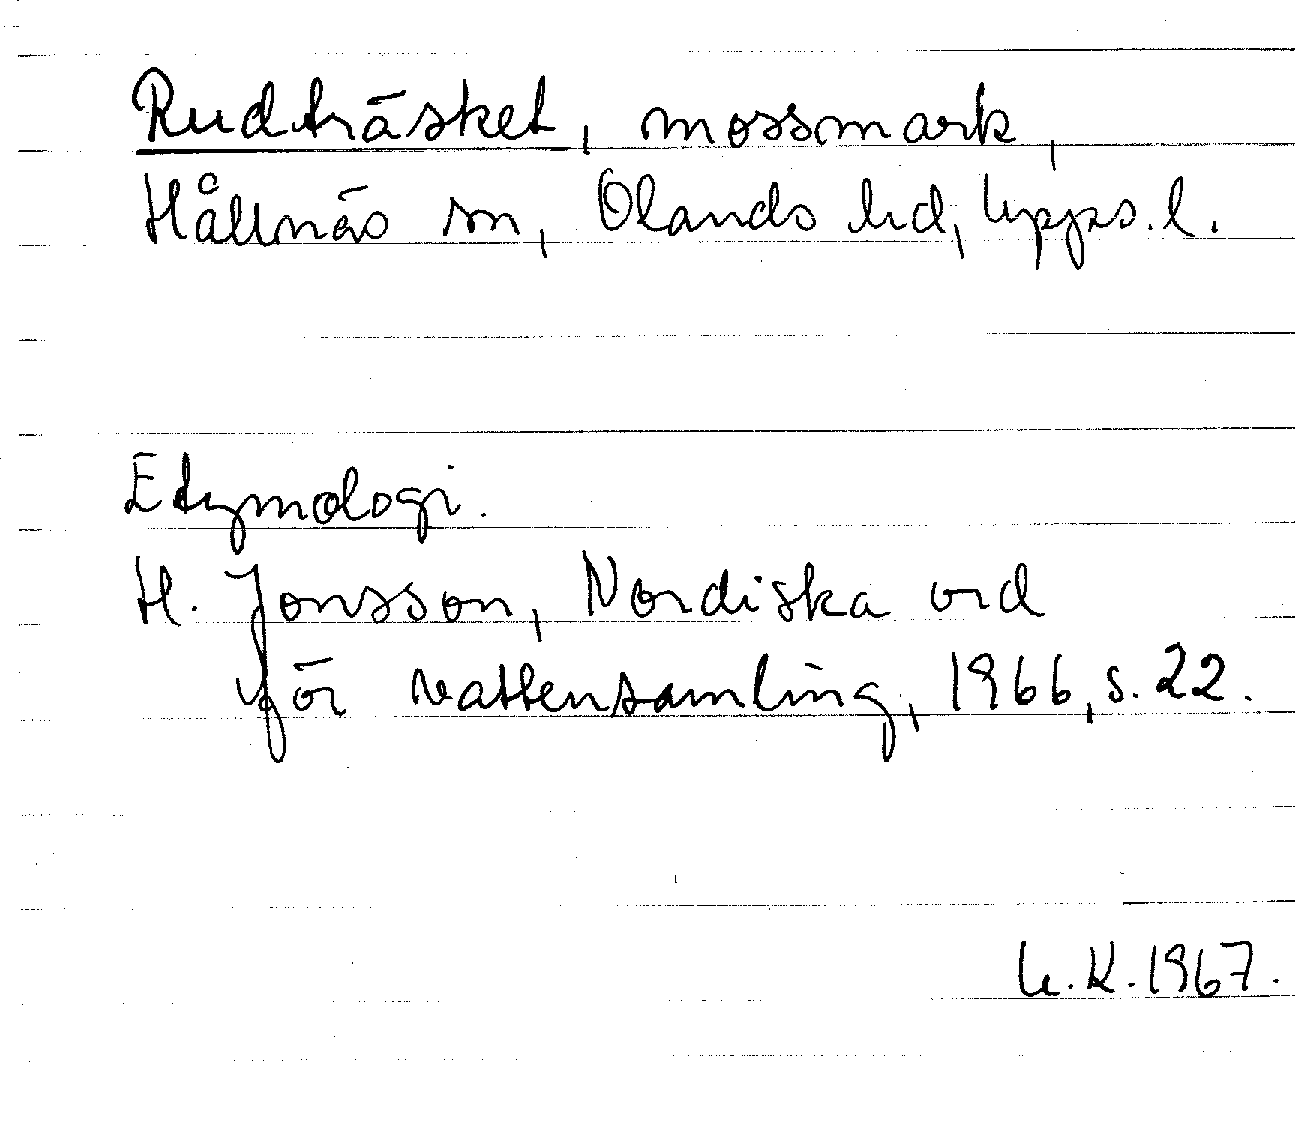 Rudträsket, mossmark,
Hållnäs sn, Olands hd, Upps. l.
Etymologi.
H. Jonsson, Nordiska ord
för vattensamling, 1966, s. 22.
U. K. 1967.